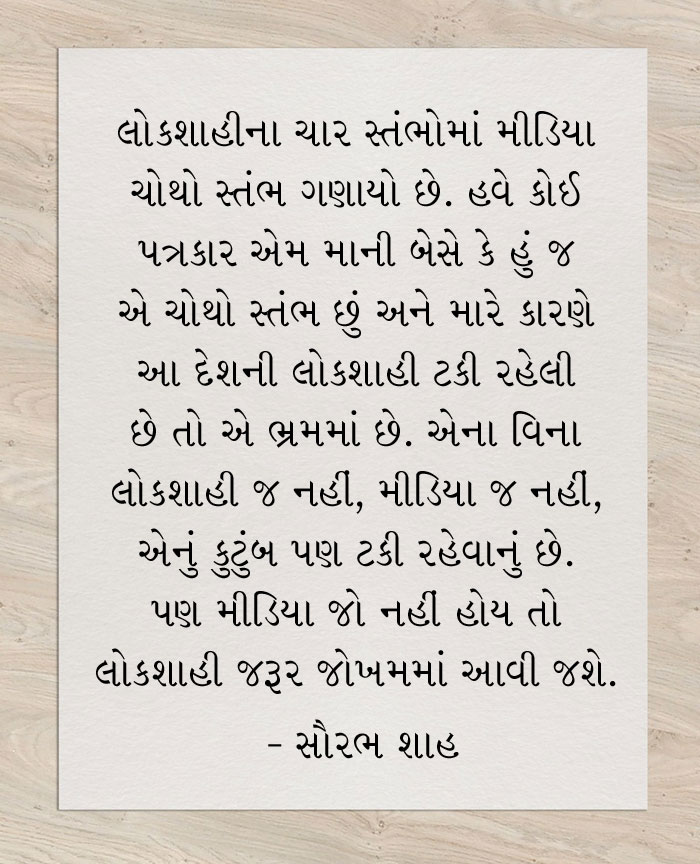 લોકશાહીના ચાર સ્તંભોમાં મીડિયા
ચોથો સ્તંભ ગણાયો છે. હવે કોઈ
પત્રકાર એમ માની બેસે કે હું જ
એ ચોથો સ્તંભ છું અને મારે કારણે
આ દેશની લોકશાહી ટકી રહેલી
છે તો એ ભ્રમમાં છે. એના વિના
લોકશાહી જ નહીં, મીડિયા જ નહીં,
એનું કુટુંબ પણ ટકી રહેવાનું છે.
પણ મીડિયા જો નહીં હોય તો
લોકશાહી જરૂર જોખમમાં આવી જશે.
- સૌરભ શાહ